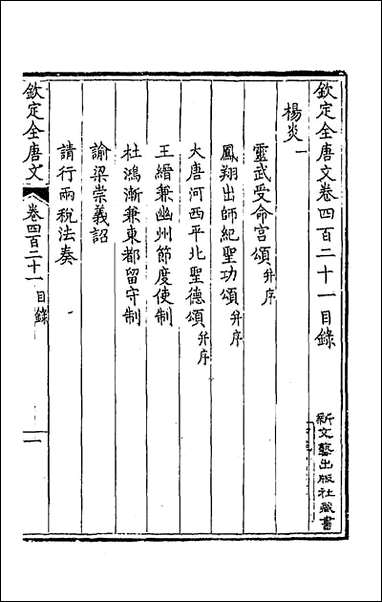 欽定全唐文卷四百二十一目錄
新文藝出版社藏書
楊炎一
靈武受命宮頌并序
鳳翔出師紀聖功頌并序
大唐河西平北聖德頌并序
王縉兼幽州節度使制
杜鴻漸兼東都留守制
諭梁崇義詔
請行兩稅法奏
欽定全唐文
卷四百二十一 目錄
一